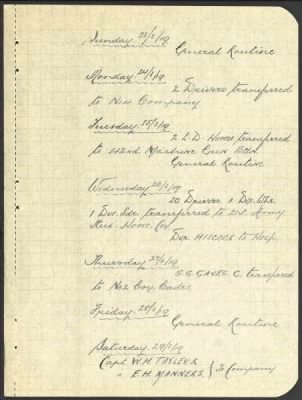 Sunday 23/2/19
General Routine
Monday 24/2/19
2 Drivers transferred
to No4 Company
Tuesday 25/2/19
2 L.D. Horses transferred
to 142nd Machine Gun Bttn.
General Routine
Wednesday 26/2/19
20 Drivers 1 Dvr.
1 Dvr. Sdr. transferred to Army
Aux. Horse Coy
Dvr HISCOCK to Hosp.
Thursday 27/2/19
S.G. GAVEL. C. transfered
to No2 Coy Cadre
Friday 28/2/19
General Routine
Saturday 29/2/19
Capt W.H. TAYLEUR
" E.H. MANNERS. } To Company